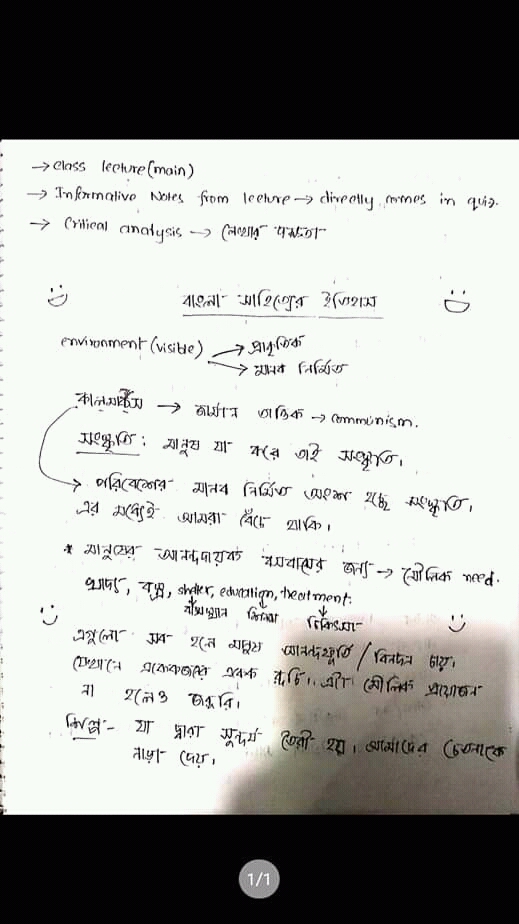 → class lecture (main)
→ Informative Notes from lecture → directly comes in quiz.
→ Critical analysis → লেখার দক্ষতা
বাংলা সাহিত্যের ইতিহাস
environment (visible) → প্রাকৃতিক
→ মানব নির্মিত
কালমার্ক্স → জার্মান তাত্ত্বিক → communism.
সংস্কৃতি : মানুষ যা করে তাই সংস্কৃতি।
→ পরিবেশের মানব নির্মিত অংশ হচ্ছে সংস্কৃতি,
এর মধ্যেই আমরা বেঁচে থাকি।
* মানুষের আনন্দদায়ক বসবাসের জন্য → মৌলিক need.
খাদ্য, বস্ত্র, shelter, education, treatment.
বাসস্থান শিক্ষা চিকিৎসা
এগুলো সব হলে মানুষ আনন্দস্ফূর্তি / বিনদন চায়।
যেখানে একেকজনের একক রুচি। এটা মৌলিক প্রয়োজন
না হলেও জরুরি।
শিল্প - যা দ্বারা সুন্দর্য তৈরী হয়। আমাদের চেতনাকে
নাড়া দেয়।
1/1